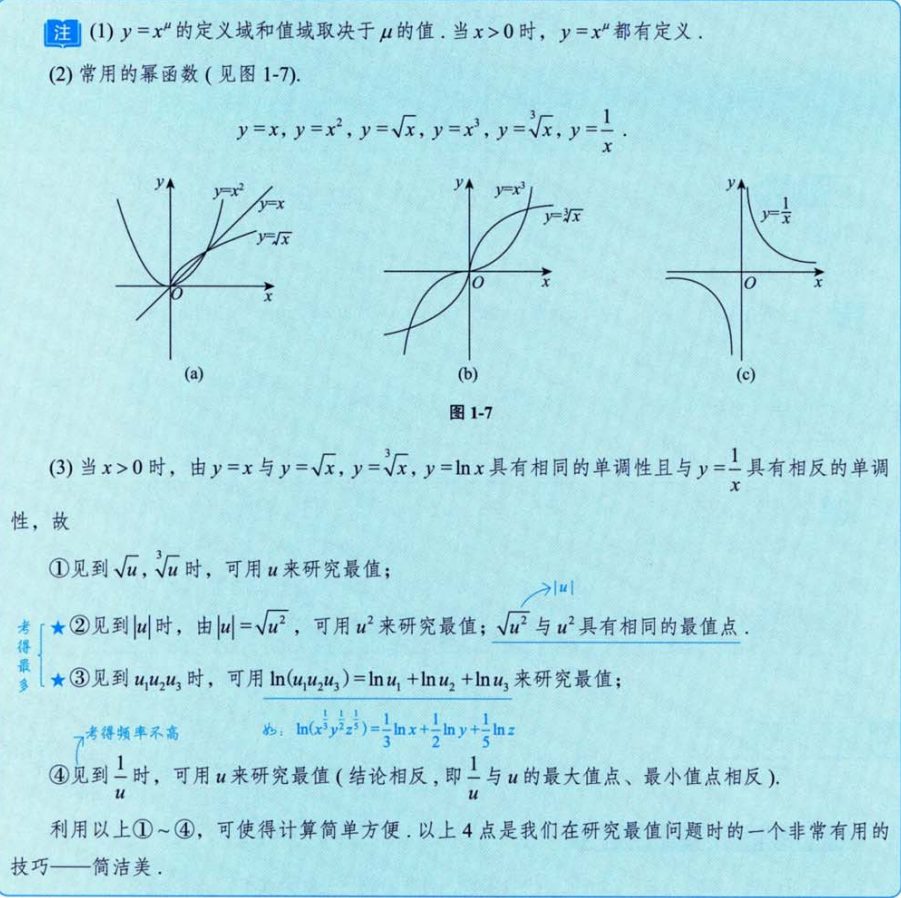 注 (1) y=x^μ 的定义域和值域取决于 μ 的值.当 x>0 时, y=x^μ 都有定义.
(2) 常用的幂函数(见图 1-7).
y=x, y=x², y=√x, y=x³, y=∛x, y=1/x.
y y=x² y=x y=√x O x
y y=x³ y=∛x O x
y y=1/x O x
(a) (b) (c)
图 1-7
(3) 当 x>0 时, 由 y=x 与 y=√x, y=∛x, y=ln x 具有相同的单调性且与 y=1/x 具有相反的单调
性, 故
①见到 √u, ∛u 时, 可用 u 来研究最值;
|u|
考得最多
★②见到|u|时, 由|u|=√u², 可用 u² 来研究最值; √u² 与 u² 具有相同的最值点.
★③见到 u₁u₂u₃ 时, 可用 ln(u₁u₂u₃)=ln u₁+ln u₂+ln u₃ 来研究最值;
如: ln(x^(1/3)y^(1/2)z^(1/5))=1/3 ln x+1/2 ln y+1/5 ln z
考得频率不高
④见到 1/u 时, 可用 u 来研究最值(结论相反,即 1/u 与 u 的最大值点、最小值点相反).
利用以上①~④, 可使得计算简单方便.以上 4 点是我们在研究最值问题时的一个非常有用的
技巧——简洁美.